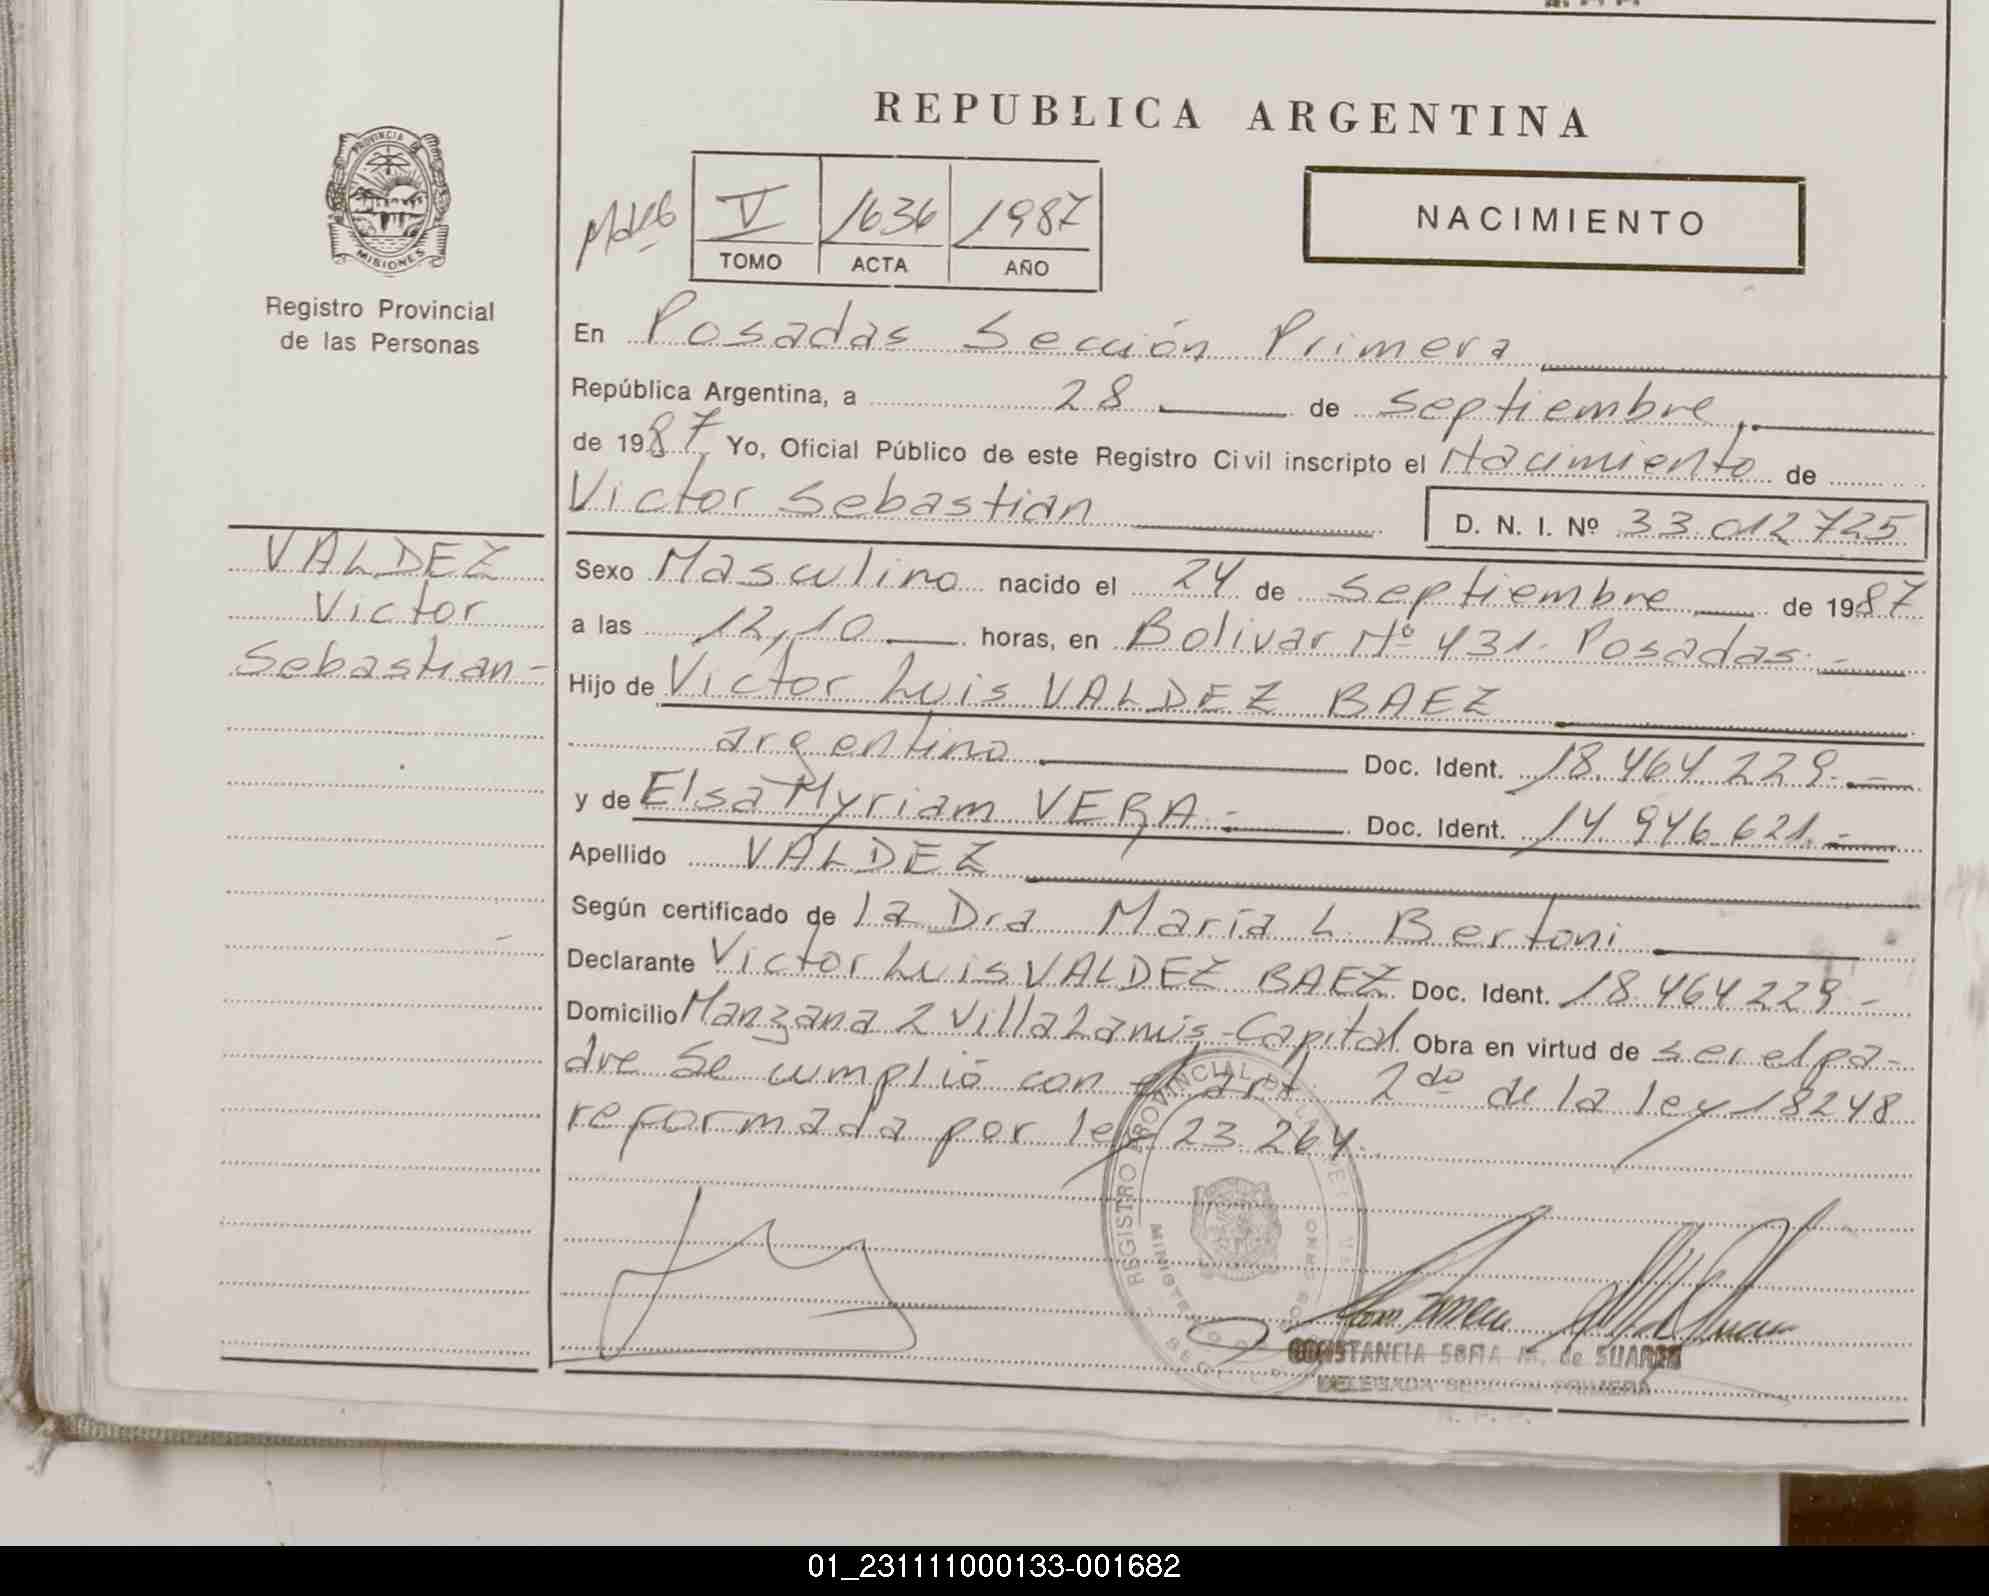 REPUBLICA ARGENTINA
PROVINCIA DE MISIONES
Registro Provincial
de las Personas
V 1636 1987
TOMO ACTA AÑO
NACIMIENTO
En Posadas Sección Primera
República Argentina, a 28 de septiembre
de 1987 Yo, Oficial Público de este Registro Civil inscripto el Nacimiento de
Victor Sebastian D. N. I. Nº 33.012.725
VALDEZ
Victor
Sebastian-
Sexo Masculino nacido el 24 de septiembre de 1987
a las 12,10 horas, en Bolivar Nº 431. Posadas.-
Hijo de Victor Luis VALDEZ BAEZ
argentino Doc. Ident. 18.464.229.-
y de Elsa Myriam VERA.- Doc. Ident. 14.946.621.-
Apellido VALDEZ
Según certificado de la Dra María L. Bertoni
Declarante Victor Luis VALDEZ BAEZ Doc. Ident. 18.464.229-
Domicilio Manzana 2 Villa Lanús-Capital Obra en virtud de ser el pa-
dre Se cumplió con el art. 2do de la ley 18248
reformada por ley 23.264.
REGISTRO PROVINCIAL DE LAS PERSONAS
CONSTANCIA SOFIA M. de SUAREZ
DELEGADA SECCION PRIMERA
R. P. P.
01_231111000133-001682